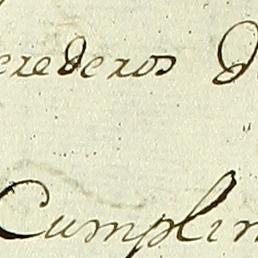 erederos D
Cumplim